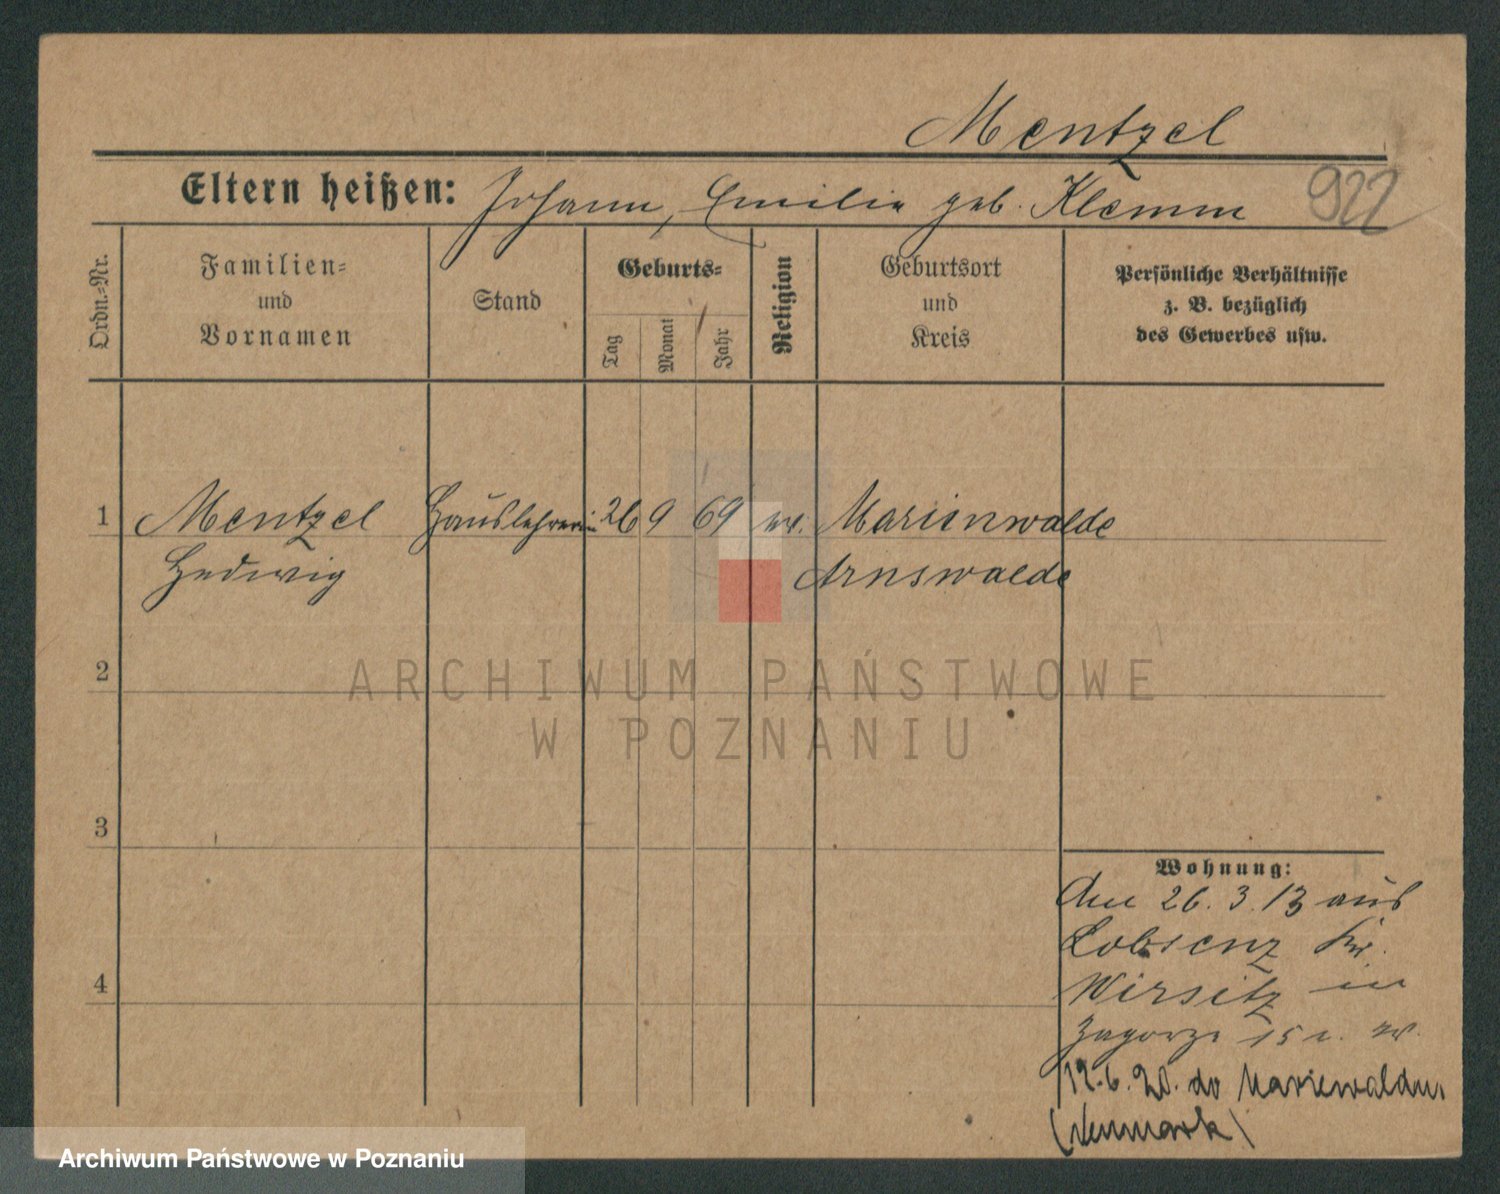 Mentzel
Eltern heißen: Johann, Emilie geb. Klemm
922
Ordn.-Nr.
Familien-
und
Vornamen
Stand
Geburts-
Tag
Monat
Jahr
Religion
Geburtsort
und
Kreis
Persönliche Verhältnisse
z. B. bezüglich
des Gewerbes usw.
1 Mentzel Hauslehrerin 26 9 69 ev. Marienwalde
Hedwig Arnswalde
2
ARCHIWUM PAŃSTWOWE
W POZNANIU
3
Wohnung:
Am 26. 3. 13 aus
Lobsenz Kr.
4
Wirsitz in
Zagorze 15
12.6.20. do Mariewaldu
(Neumark)
Archiwum Państwowe w Poznaniu